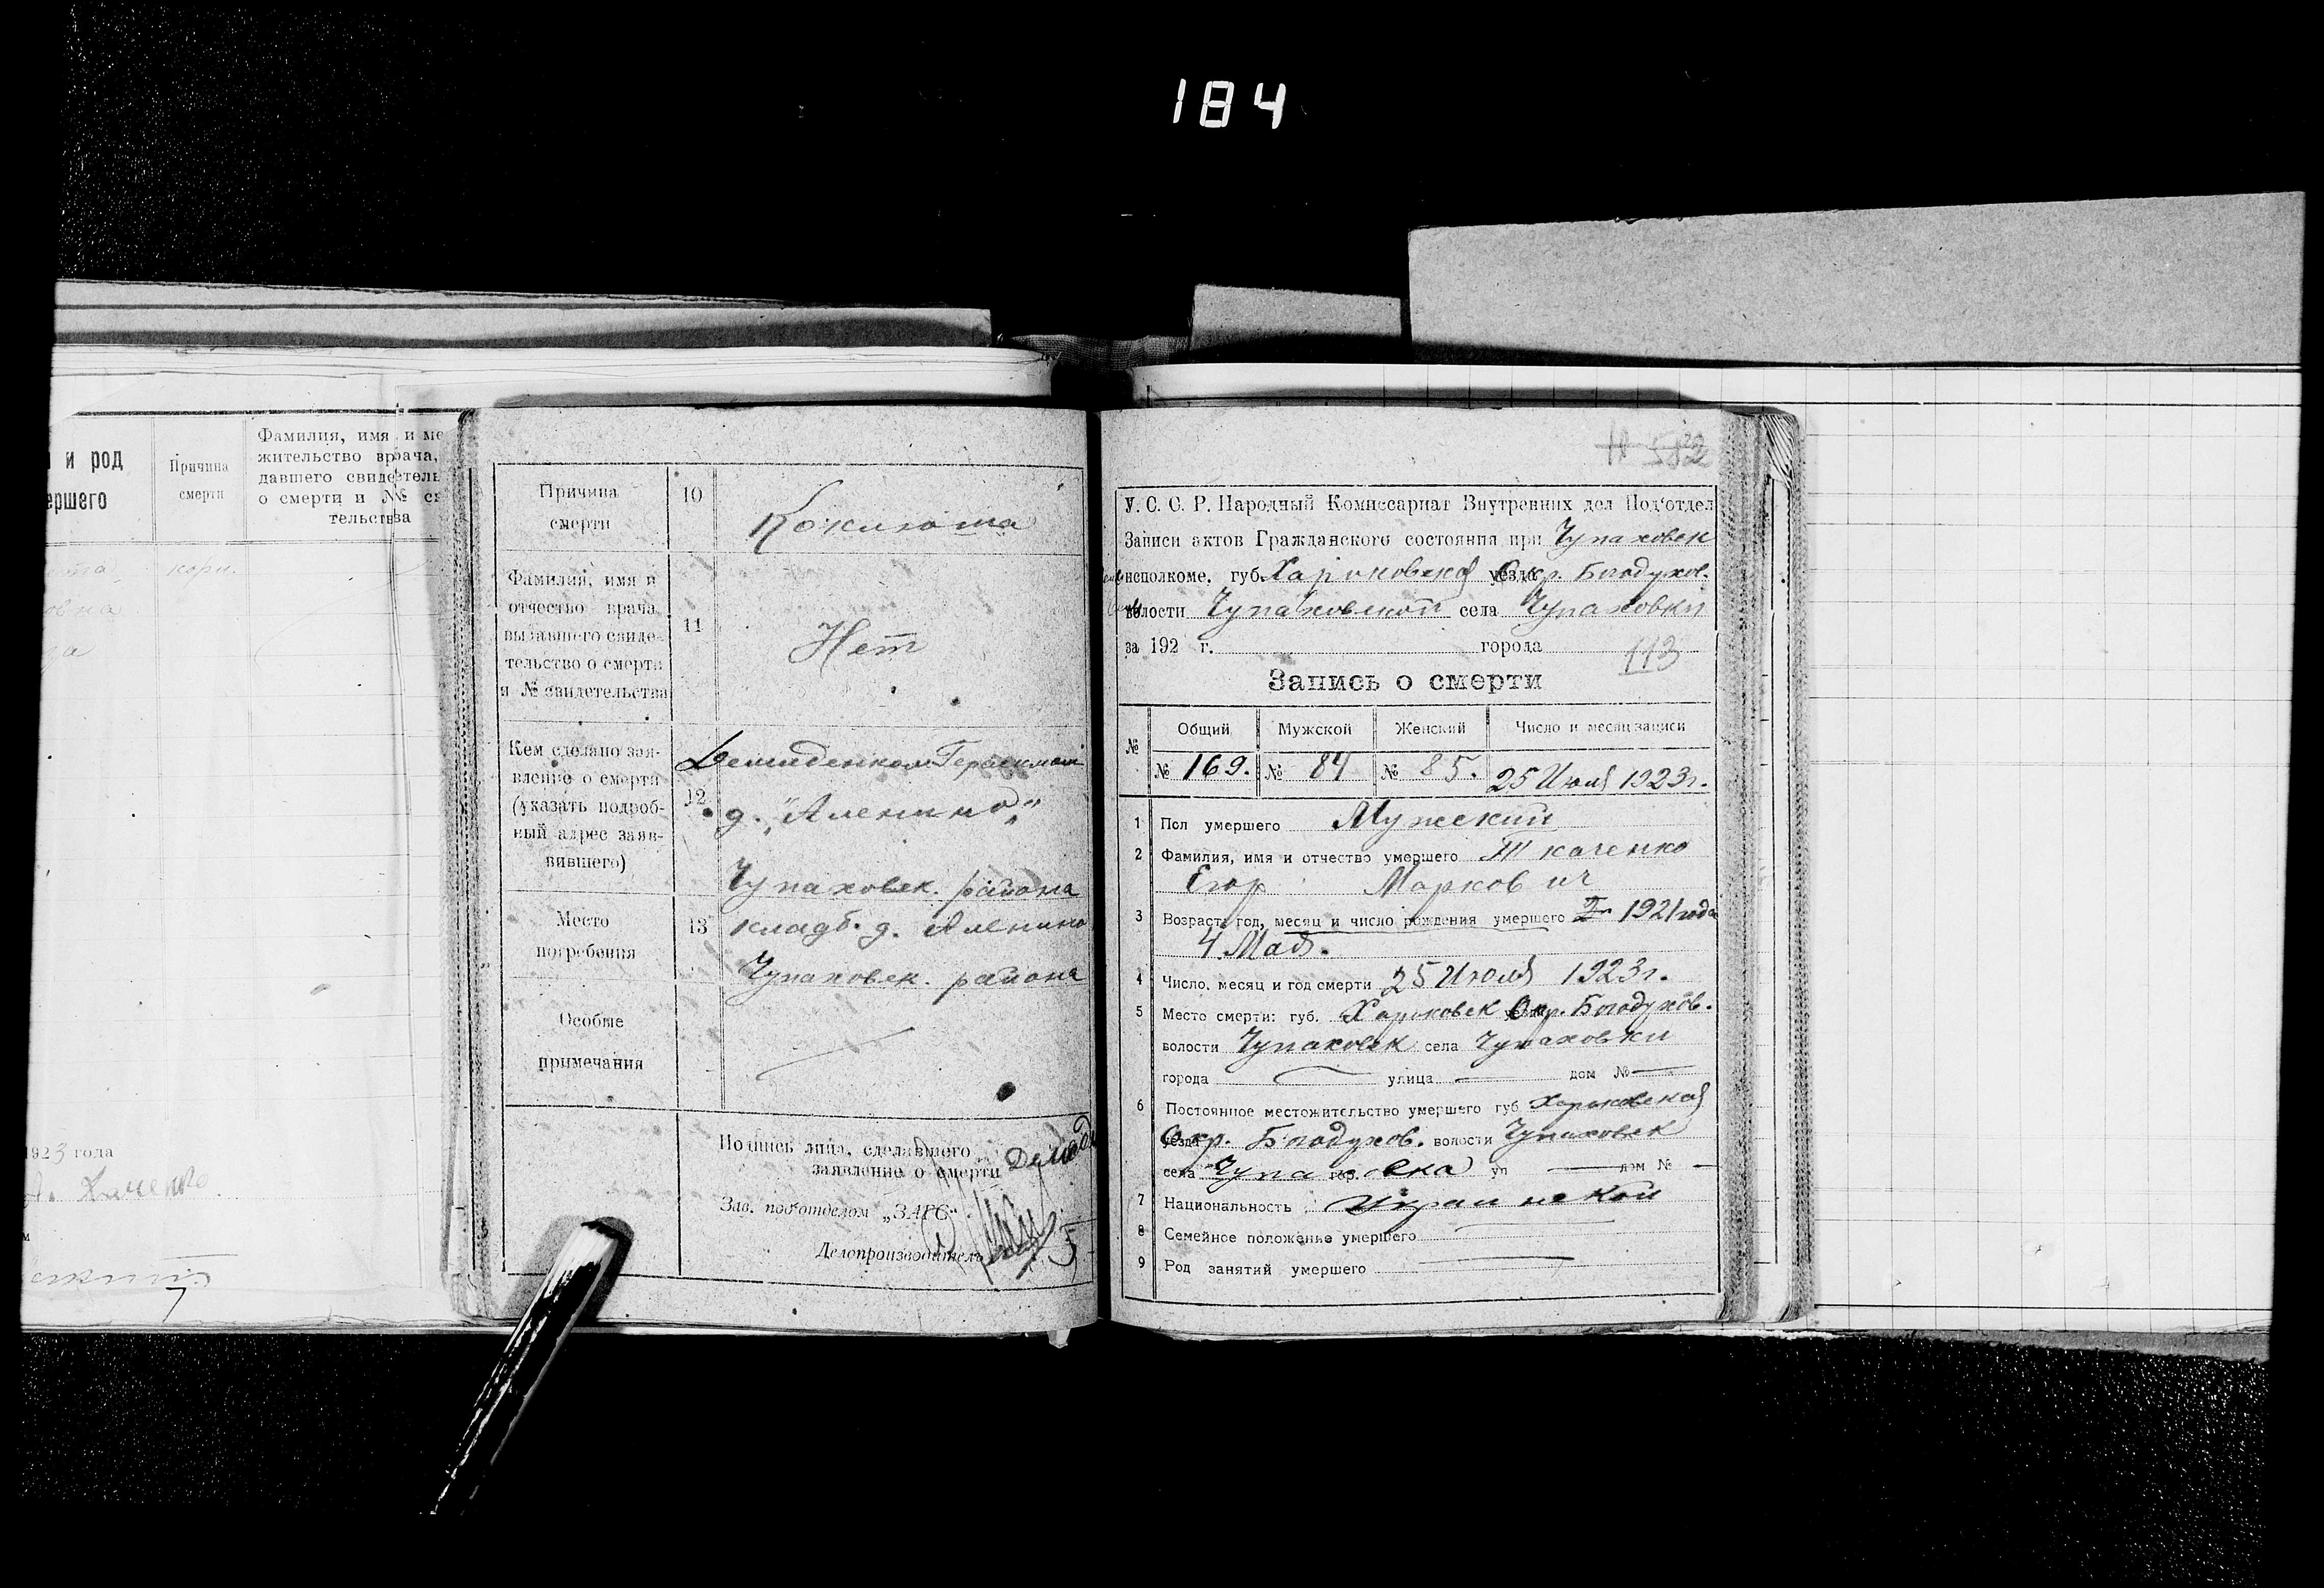 184
и род
ершего
Причина
смерти
Фамилия, имя и ме
жительство врача,
давшего свидетель
о смерти и № св
тельства
кори.
овна
1923 года
Причина
смерти
10
Коклюша
Фамилия, имя и
отчество врача
выдавшего свиде-
тельство о смерти
и № свидетельства
11
Нет
Кем сделано зая-
вление о смерти
(указать подроб-
ный адрес заяв-
вившего)
12
Демиденком Герасимом
д. „Аленино„
Чупаховск. района
Место
погребения
13
кладб. д. Аленино
Чупаховск. района
Особые
примечания
Подпись лица, сделавшего
заявление о смерти Демид
Зав. под'отделом „ЗАГС“
Делопроизводитель
У. С. С. Р. Народный Комиссариат Внутренних дел Под'отдел
Записи актов Гражданского состояния при Чупаховск
исполкоме, губ. Харьковской уезда Окр. Богодухов.
волости Чупаховской села Чупаховки
за 192 г. города
113
Запись о смерти
№ Общий Мужской Женский Число и месяц записи
№ 169. № 84 № 85. 25 Июля 1923г.
1 Пол умершего Мужский
2 Фамилия, имя и отчество умершего Ткаченко
Егор Маркович
3 Возраст: год, месяц и число рождения умершего 1921 года
4 Мая.
4 Число, месяц и год смерти 25 Июля 1923г.
5 Место смерти: губ. Харьковск Окр. Богодухов.
волости Чупаховск села Чупаховки
города улица дом №
6 Постоянное местожительство умершего губ Харьковская
уезда Окр. Богодухов. волости Чупаховск
села Чупаховка гор. ул дом №
7 Национальность Украинской
8 Семейное положение умершего
9 Род занятий умершего